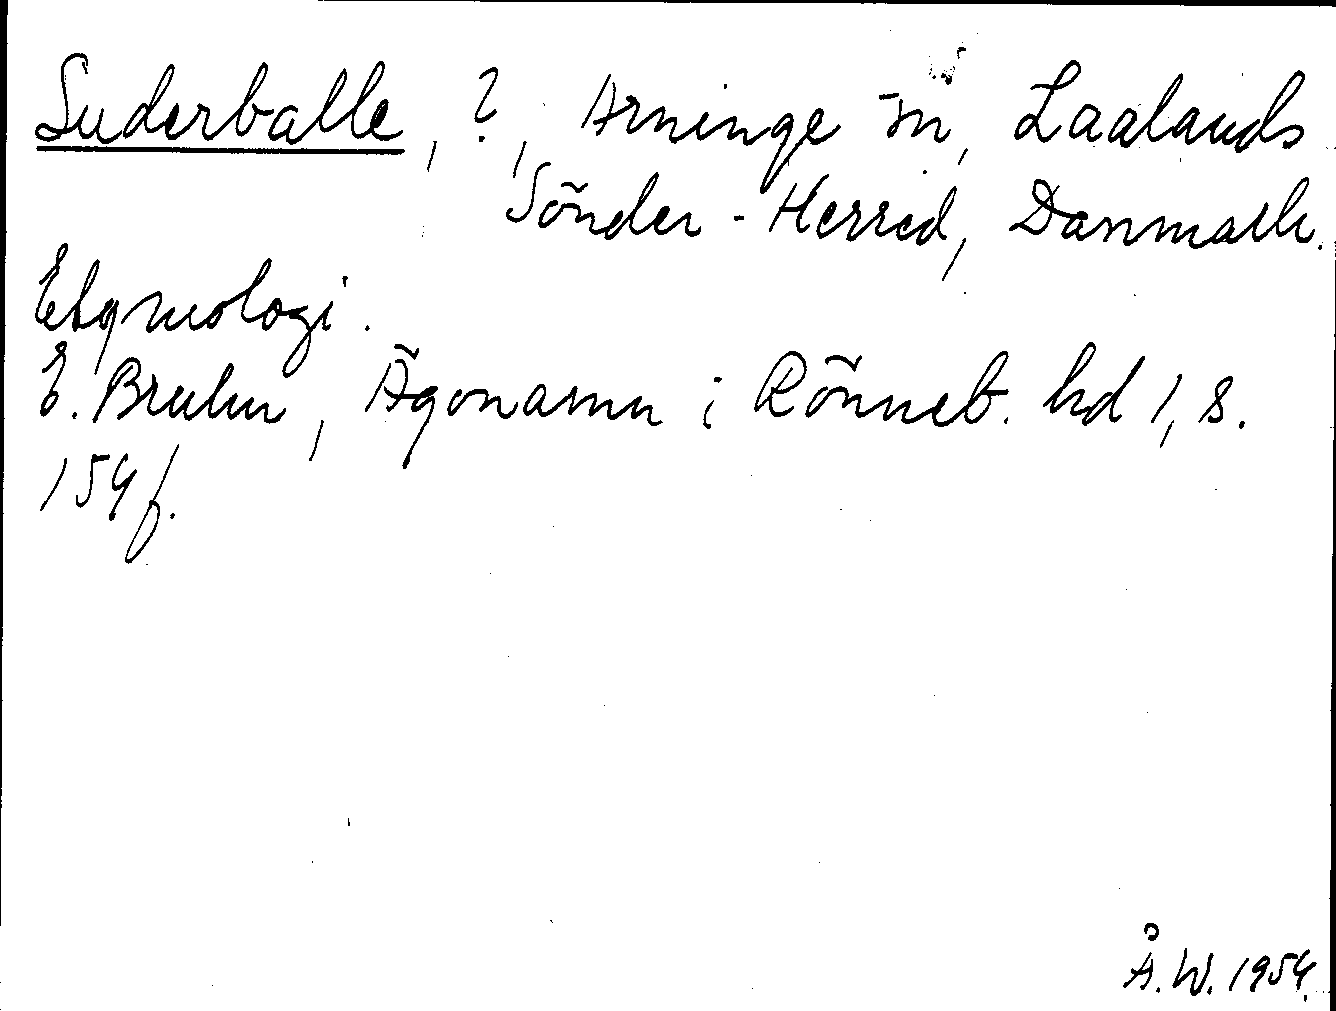 Suderballe, ?, Arninge sn, Laalands
Sönder-Herred, Danmark.
Etymologi.
E. Bruhn, Ägonamn i Rönneb. hd 1, s.
154 f.
Å. W. 1954.